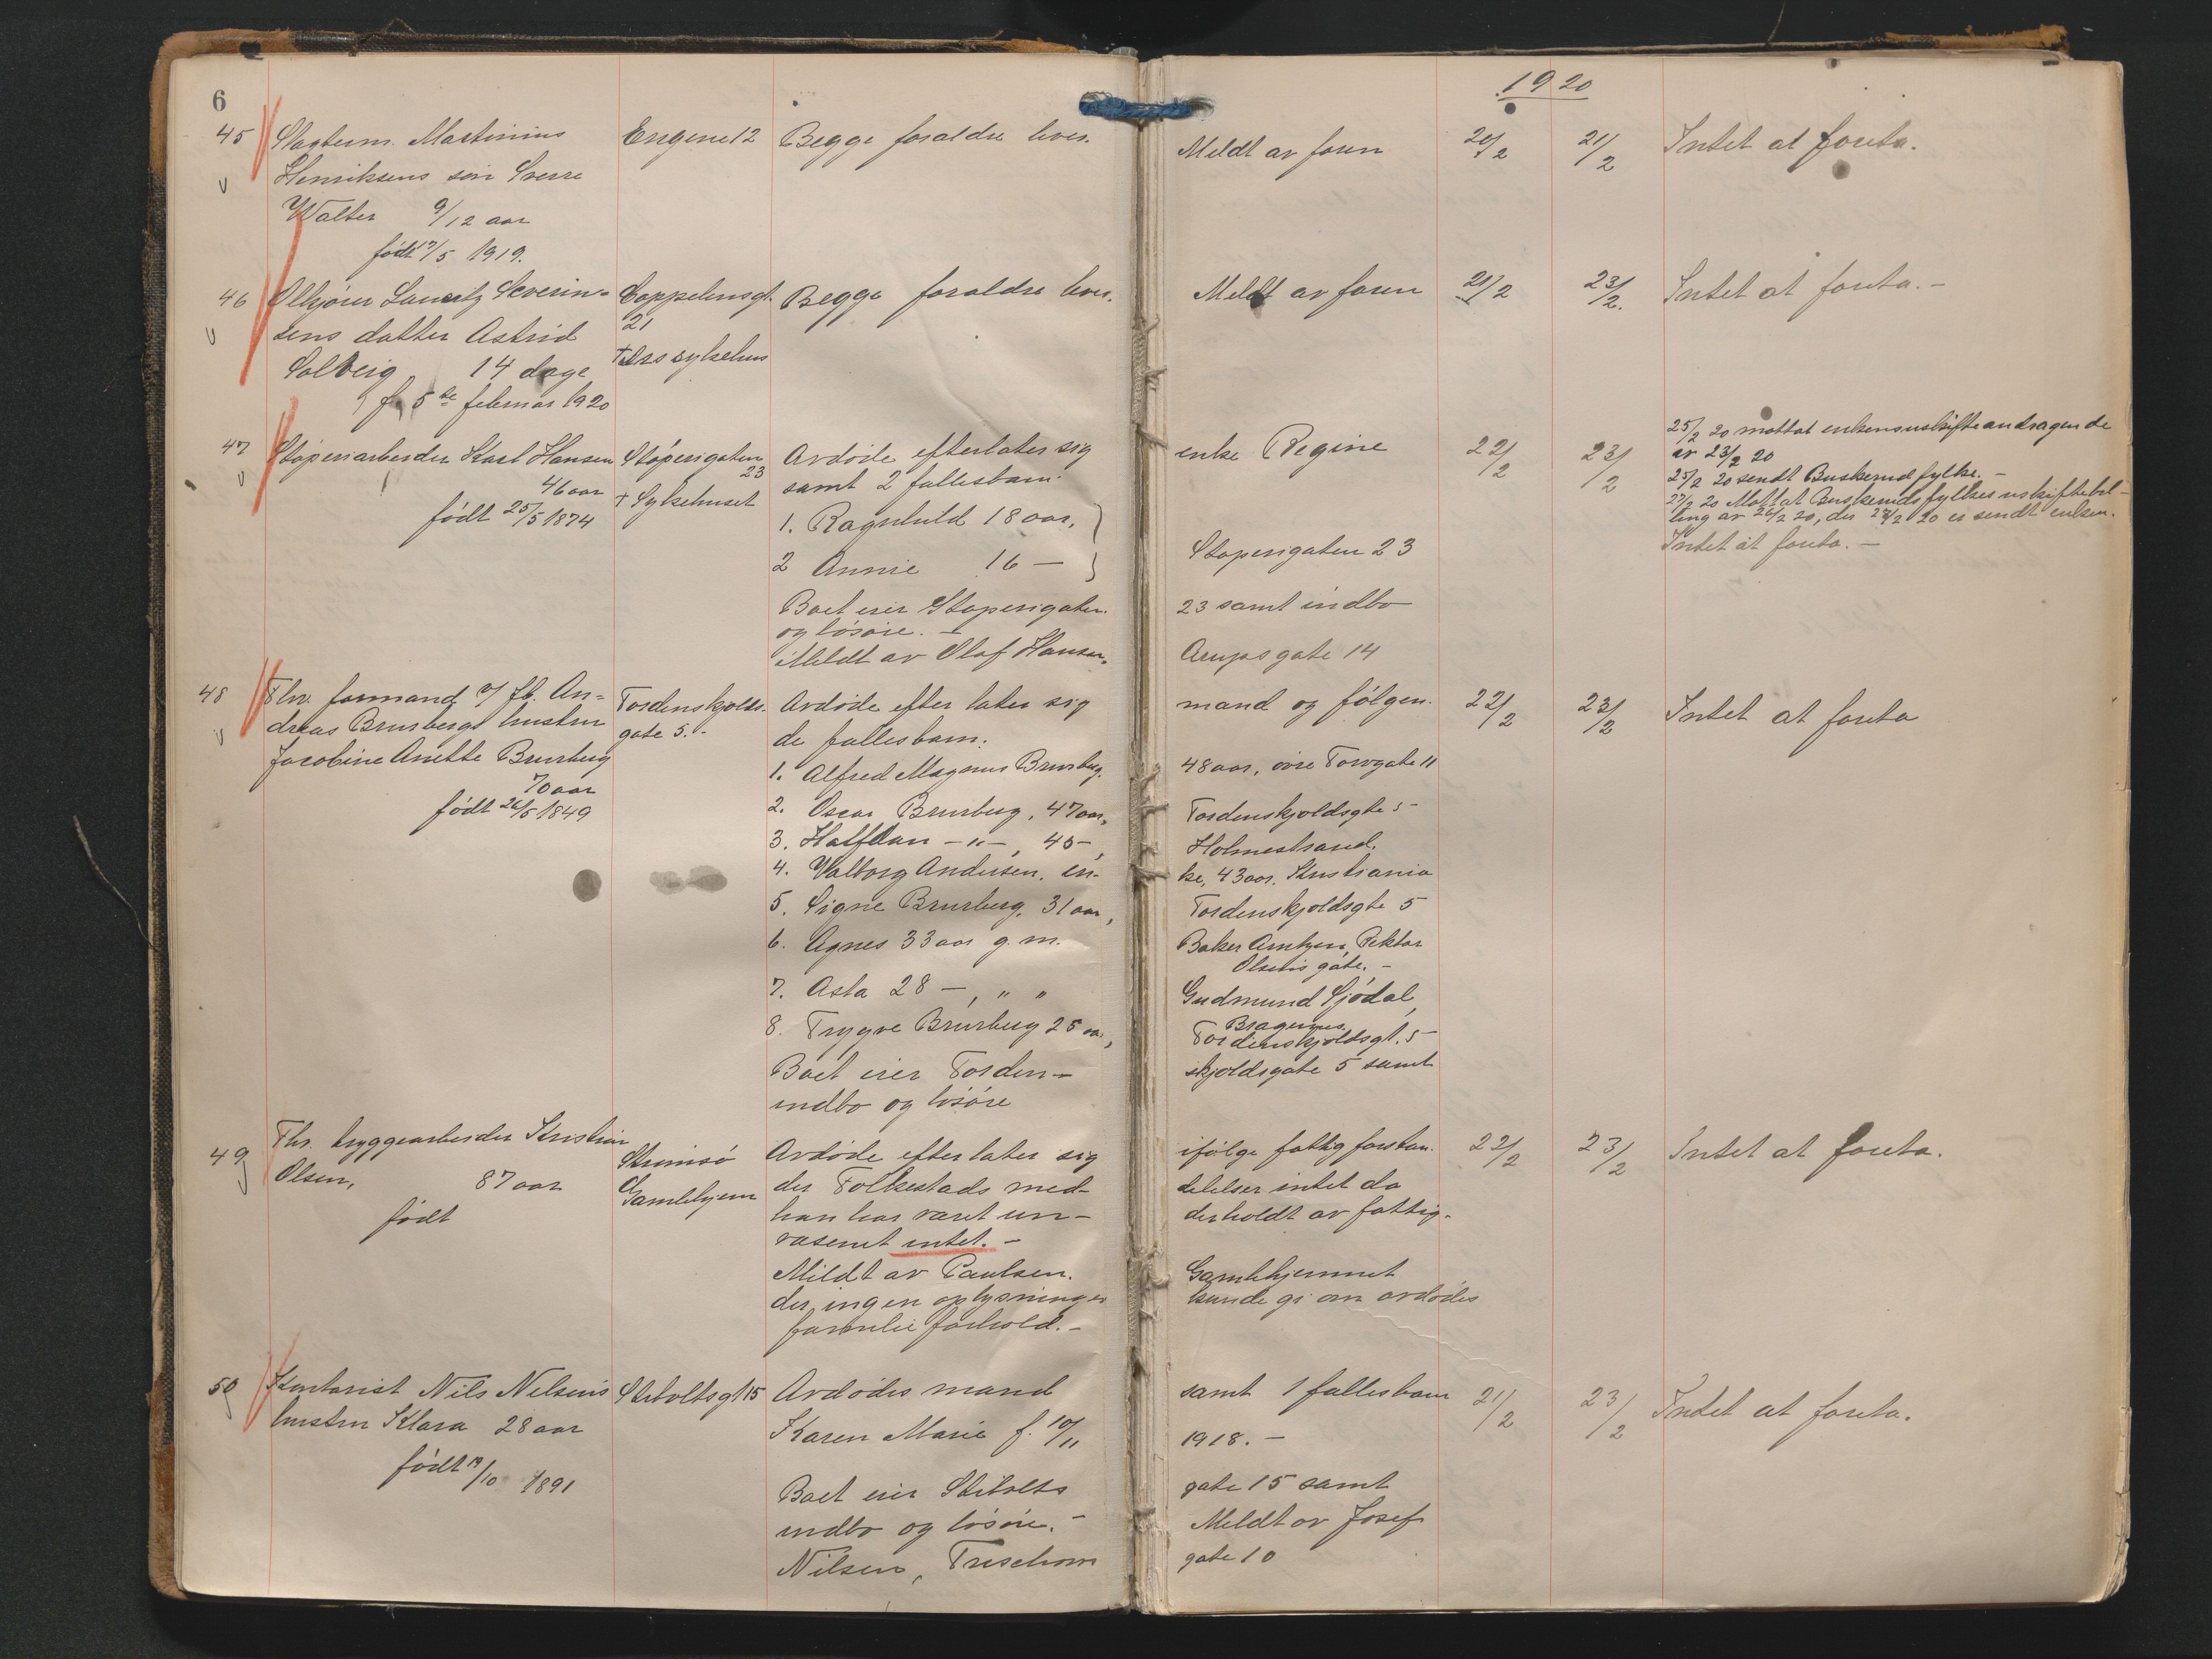 6
1920
45 Slagterm. Martinius Engene 12 Begge foraldre lever. Meldt av faren 20/2 21/2 Intet at foreta.
Henriksens søn Sverre
Walter 9/12 aar
født 17/5 1919.
46 Ølkjører Lauritz Severin- Cappelensgt. Begge foraldre lever. Meldt av faren 21/2 23/2. Intet at foreta.-
sens datter Astrid 21
Solveig 14 dage + sykehus
f. 5te februar 1920
25/2 20 mottat enkens uskifteandragende
47 Støperiarbeider Karl Hansen Støperigaten Avdøde efterlater sig enke Regine 22/2 23/2 av 23/2 20
46 aar 23 samt 2 fallesbarn. 25/2 20 sendt Buskerud fylke.-
født 25/5 1874 + Sykehuset 1. Ragnhild 18 aar, 27/2 20 Mottat Buskeruds fylkes uskiftebil-
ling av 26/2 20, der 27/2 20 er sendt enken.
2 Annie 16 — Støperigaten 23 Intet at foreta.-
Boet eier Støperigaten 23 samt indbo
og løsøre.-
Meldt av Olaf Hansen, Arupsgate 14
48 Fhv. formand v/ Jb. An- Tordenskjolds- Avdøde efterlater sig mand og følgen- 22/2 23/2 Intet at foreta
dreas Brursbergs hustru gate 5.- de fallesbarn:
Jacobine Anette Brursberg 1. Alfred Magnus Brursberg. 48 aar, øvre Torvgate 11
70 aar
født 26/5 1849 2. Oscar Brursberg, 47 aar, Tordenskjoldsgte 5
3. Halfdan -"-, 45-, Holmestrand.
4. Valborg Andersen, en- ke, 43 aar. Kristiania
5. Signe Brursberg, 31 aar, Tordenskjoldsgte 5
6. Agnes 33 aar g.m. Baker Arntzen, Rektor
Olsens gate.-
7. Asta 28 —, " " Gudmund Sjødal,
Bragernes
8. Trygve Brursberg 25 aar, Tordenskjoldsgt. 5
Boet eier Torden- skjoldsgate 5 samt
indbo og løsøre
49 Fhv. bryggearbeider Kristian Strømsø Avdøde efterlater sig ifølge fattigforstan- 22/2 23/2 Intet at foreta.
Olsen, 87 aar Gamlehjem der Folkestads med- delelser intet da
født han har været un- derholdt av fattig-
væsenet intet.-
Meldt av Paulsen. Gamlehjemmet
der ingen oplysninger kunde gi om avdødes
familieforhold.-
50 Kontorist Nils Nelsens Stiboltsgt 15 Avdødes mand samt 1 fallesbarn 21/2 23/2 Intet at foreta.
hustru Klara 28 aar Karen Marie f. 10/11 1918.-
født 19/10 1891
Boet eier Stibolts gate 15 samt
indbo og løsøre.- Meldt av Josef
Nilsen, gate 10